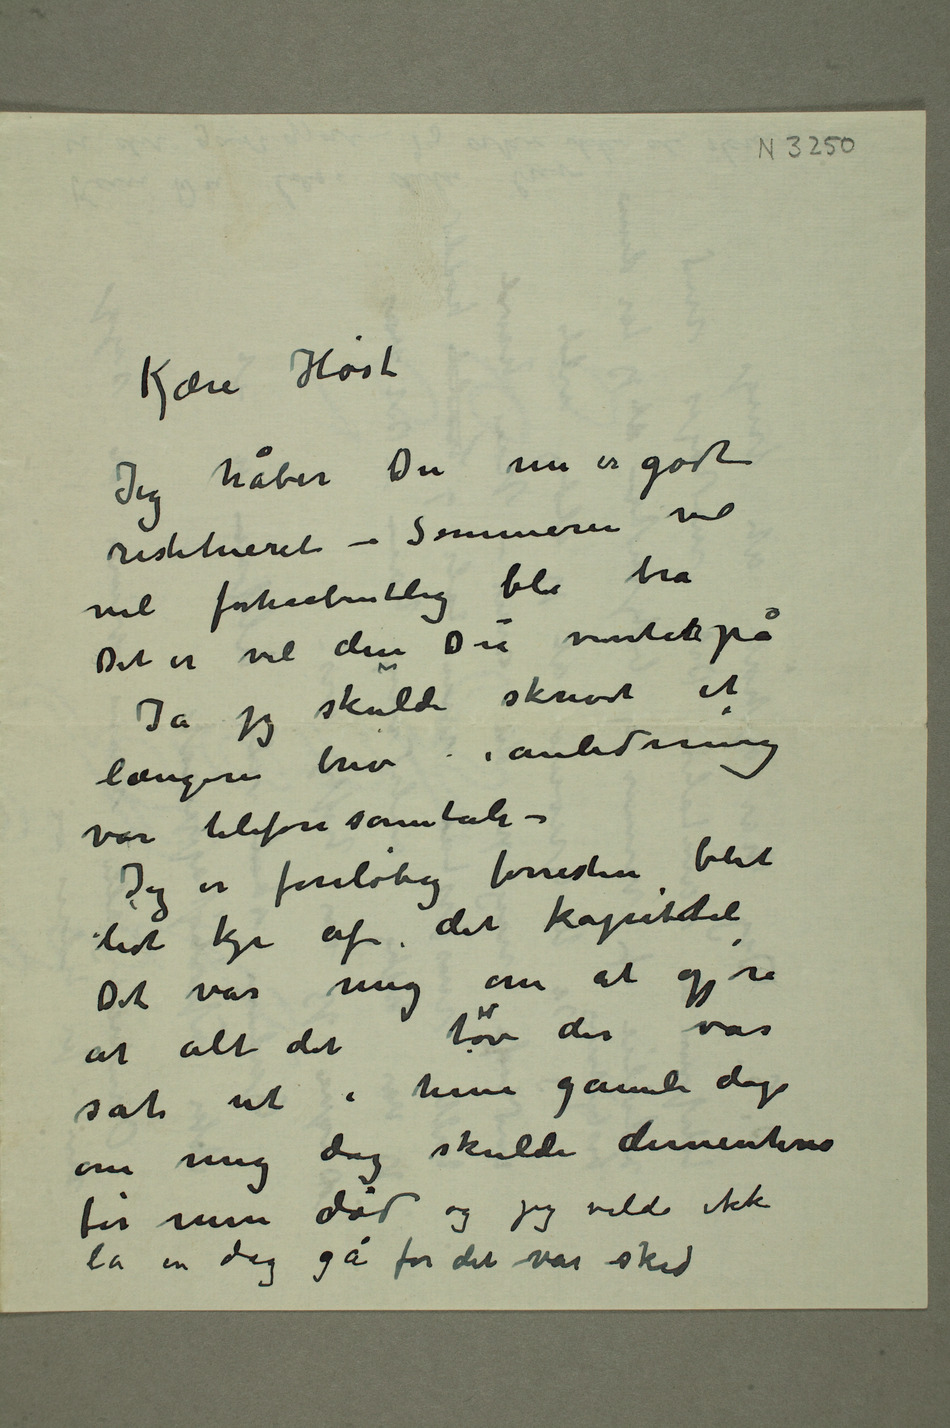 N 3250
Kjære Høst
Jeg håber Du nu er godt
restitueret – Sommeren vel
vil forhaabentlig bli bra
Det er vel den Du venter på
Ja jeg skulde skrevet et
længere brev i anledning
vor telefonsamtale –
Jeg er foreløbig forresten blet
lidt kje af det kapittel
Det var mig om at gjøre
at alt det tøv der var
sat ut i hine gamle dage
om mig dog skulde dementeres
før min død og jeg vilde ikke
la en dag gå før det var sked